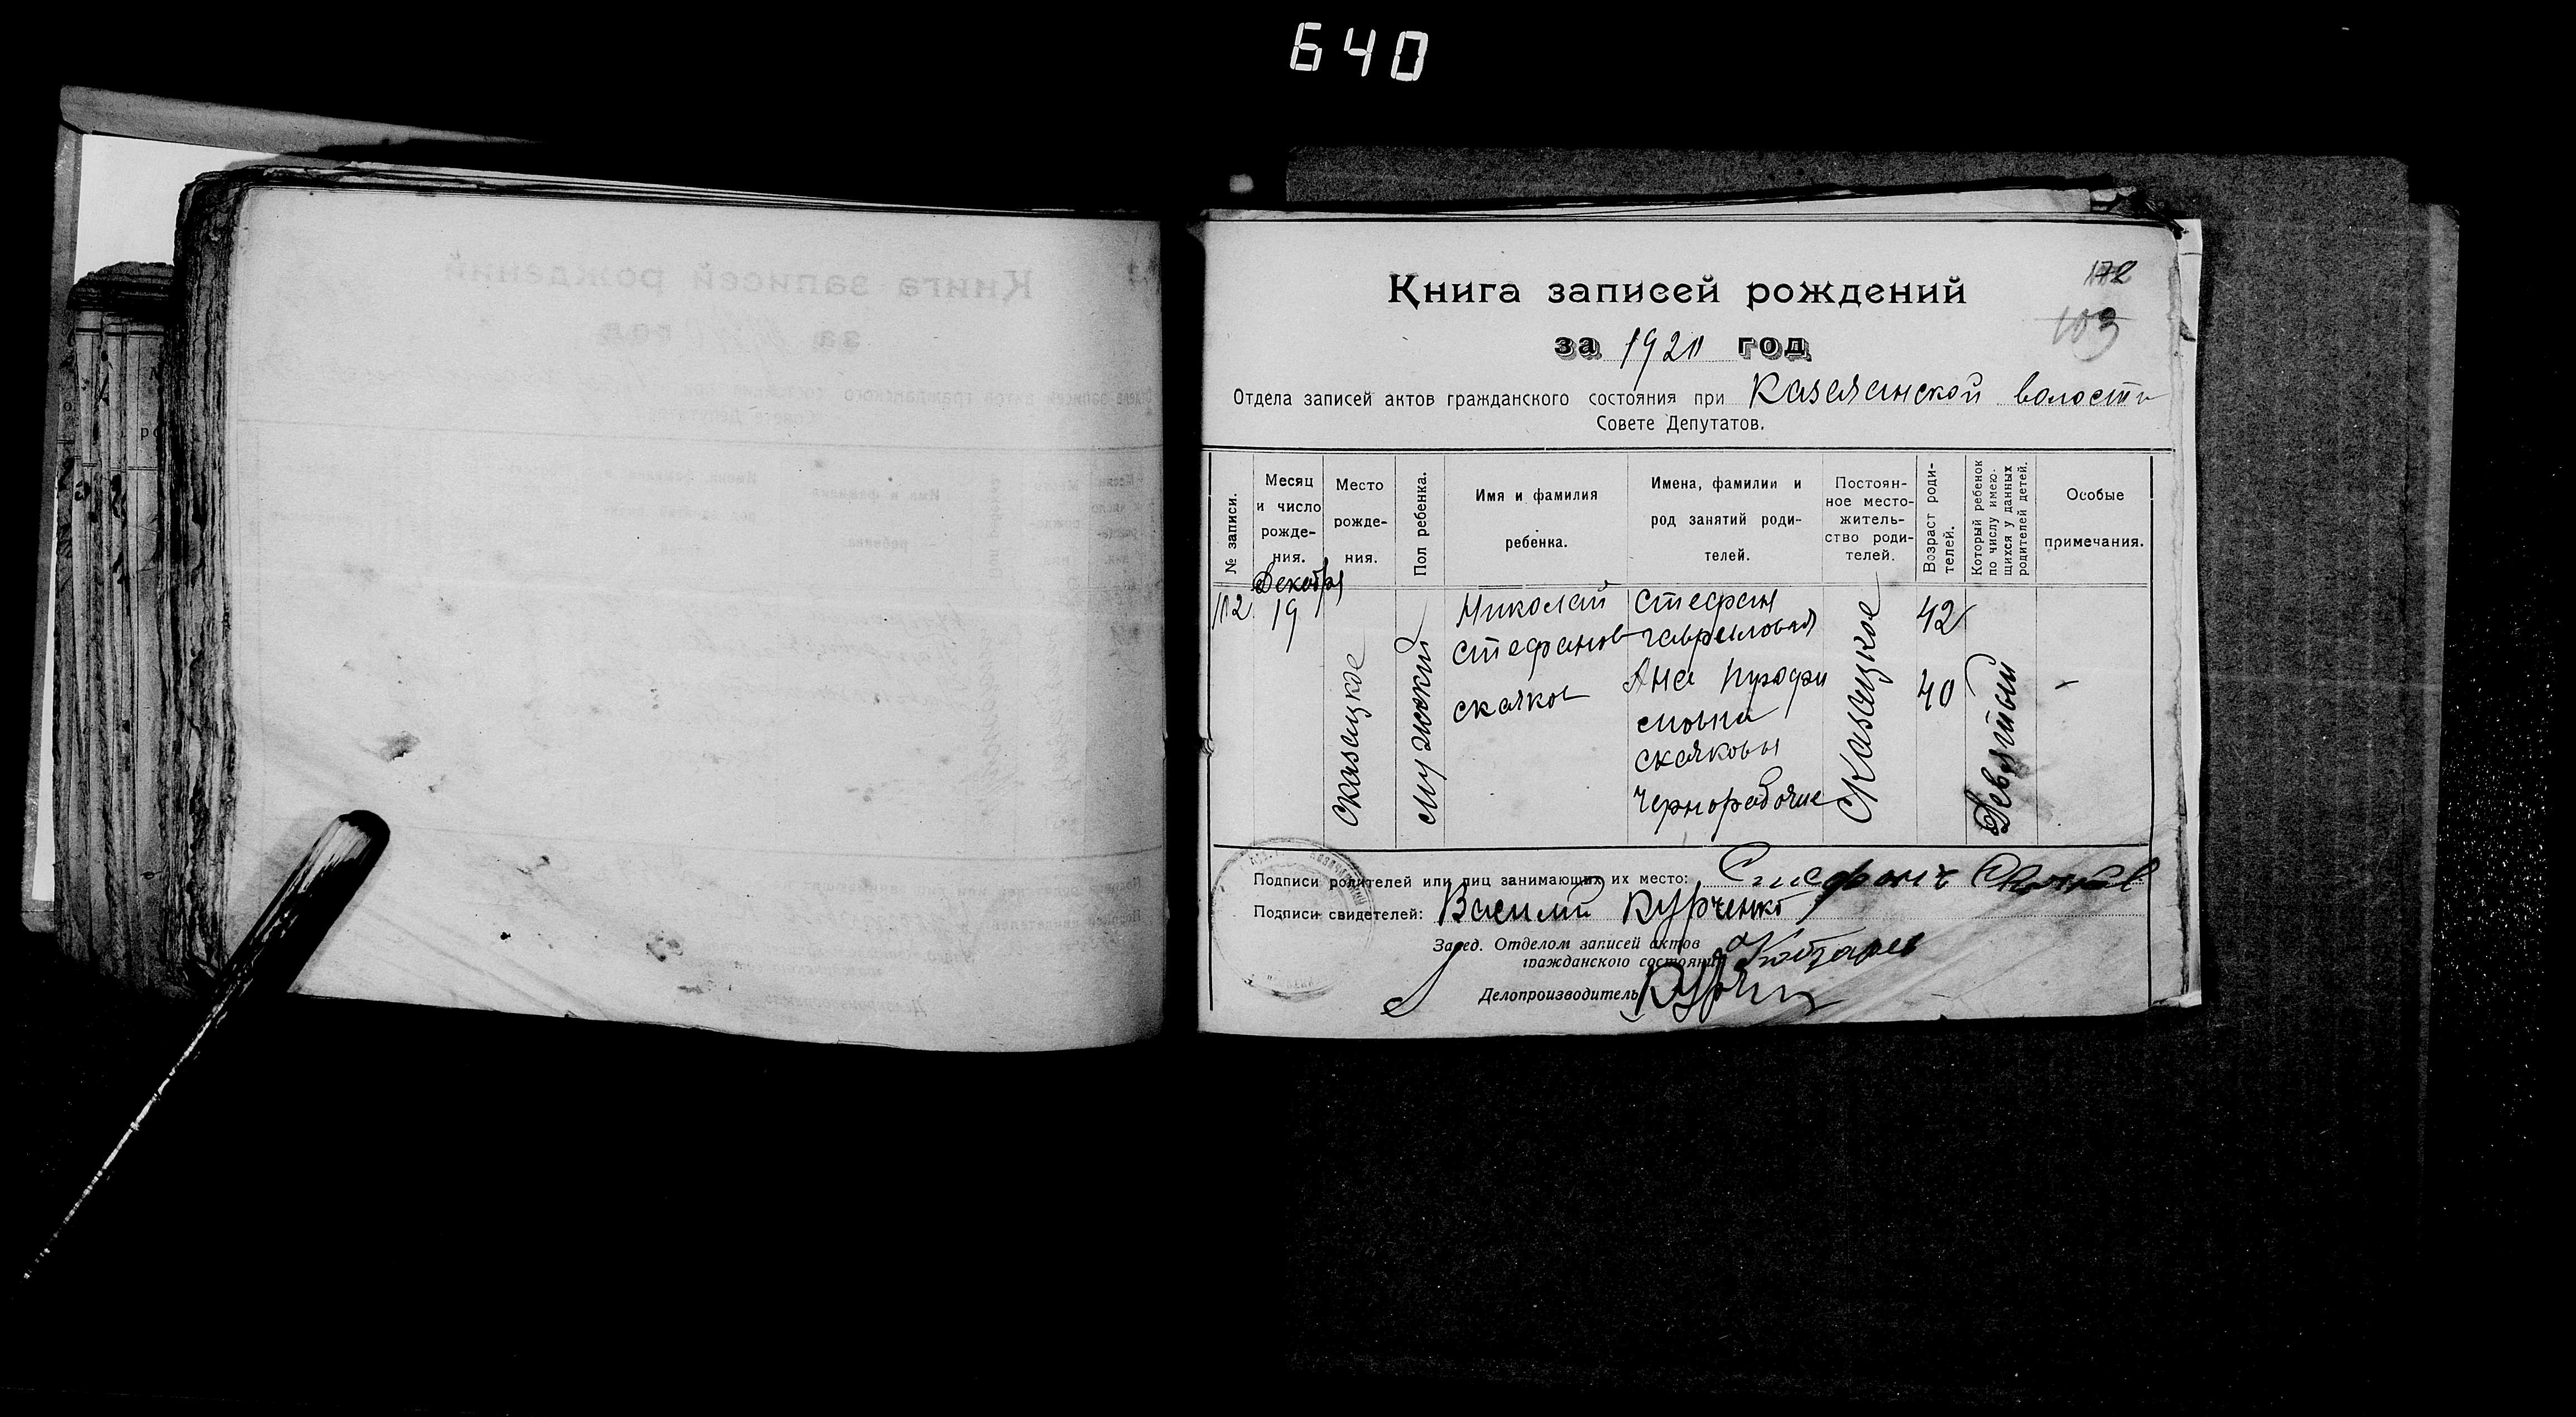 640
172
103
Книга записей рождений
за 1920 год
Отдела записей актов гражданского состояния при Казачанской волости
Совете Депутатов.
№ записи.
Месяц и число рожде- ния.
Место рожде- ния.
Пол ребенка.
Имя и фамилия ребенка.
Имена, фамилии и род занятий роди- телей.
Постоян- ное место- житель- ство роди- телей.
Возраст роди- телей.
Который ребенок по числу имею- щихся у данных родителей детей.
Особые примечания.
Декабря
112 19
мужский
Николай
Стефанов
Скачков
Стефан
Ана
Скачковы
Чернорабочие
42
40
Девятый
-
Подписи родителей или лиц занимающих их место: Стефанъ Скачков
Подписи свидетелей: Василий Курченко
Завед. Отделом записей актов
гражданского состояния
Делопроизводитель